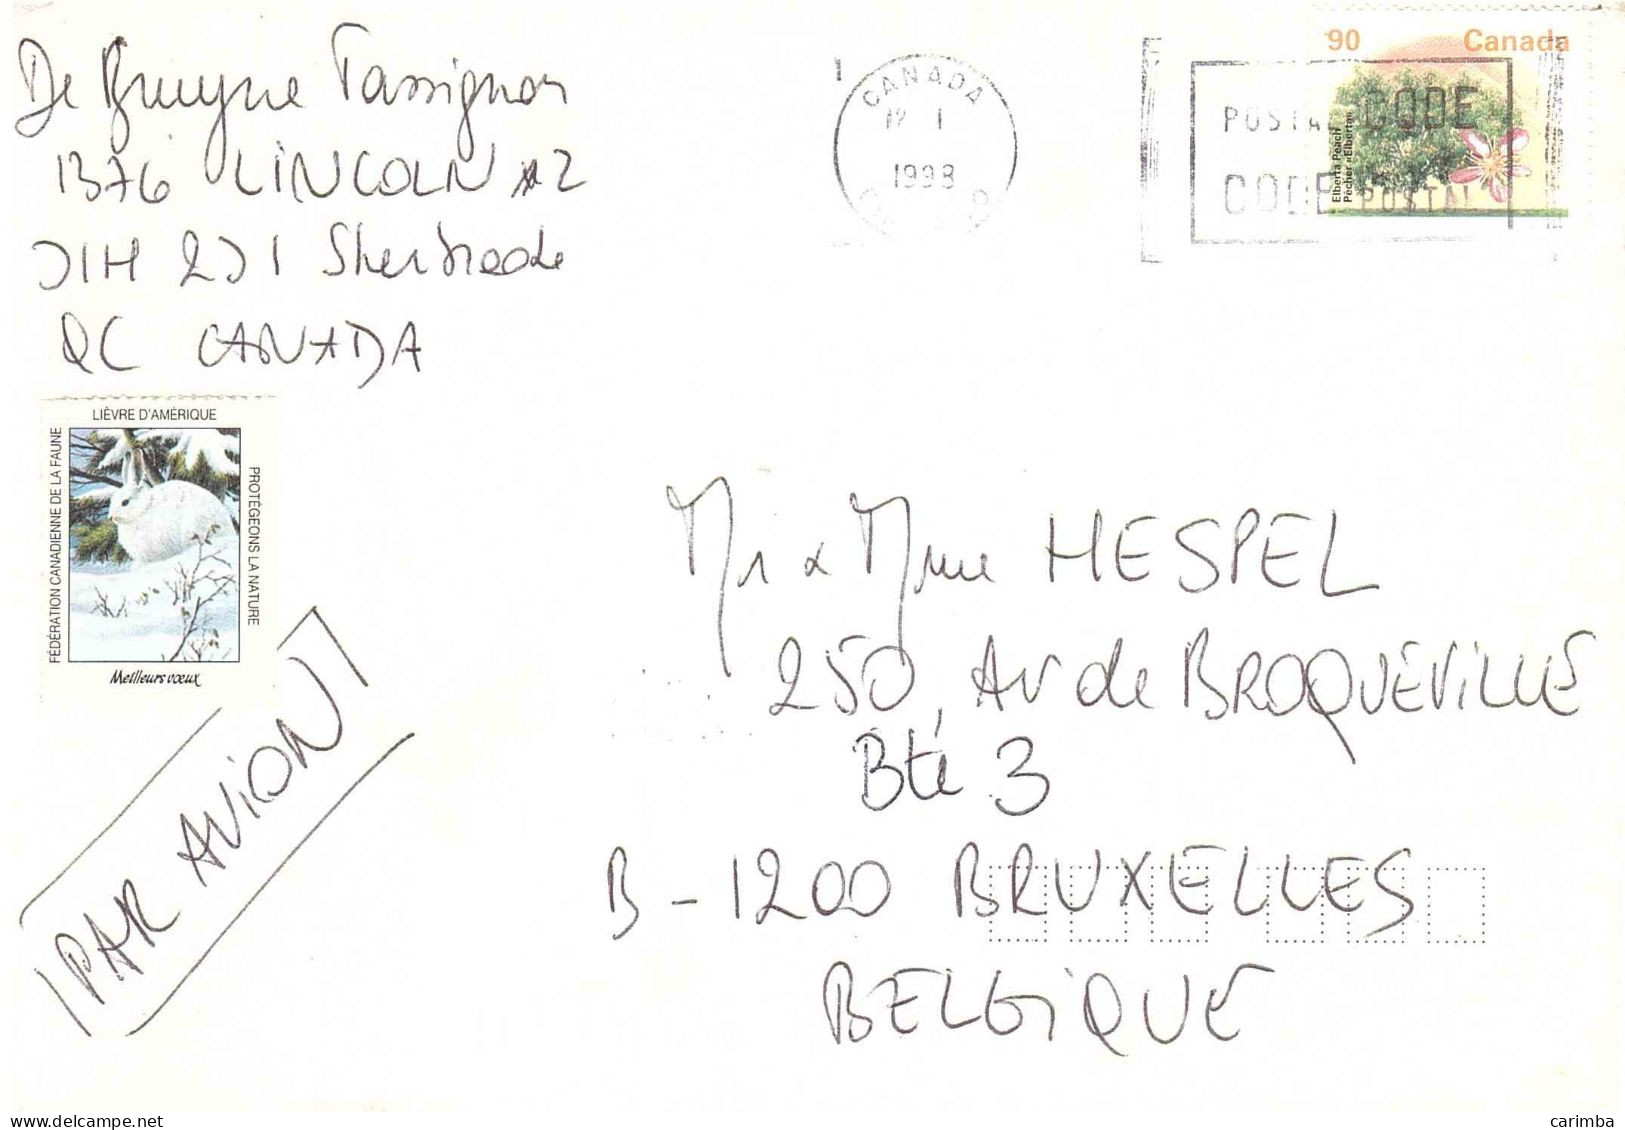 De Bruyne Tassignon
1376 LINCOLN #2
J1H 2J1 Sherbrooke
QC CANADA
1
CANADA
12 1
1998
POSTAL CODE
CODE POSTAL
90 Canada
Elberta Peach
Pêcher «Elberta»
LIÈVRE D'AMÉRIQUE
FÉDÉRATION CANADIENNE DE LA FAUNE
PROTÉGEONS LA NATURE
Meilleurs vœux
PAR AVION
Mr & Mme HESPEL
250, Av de BROQUEVILLE
Bte 3
B-1200 BRUXELLES
BELGIQUE
carimba